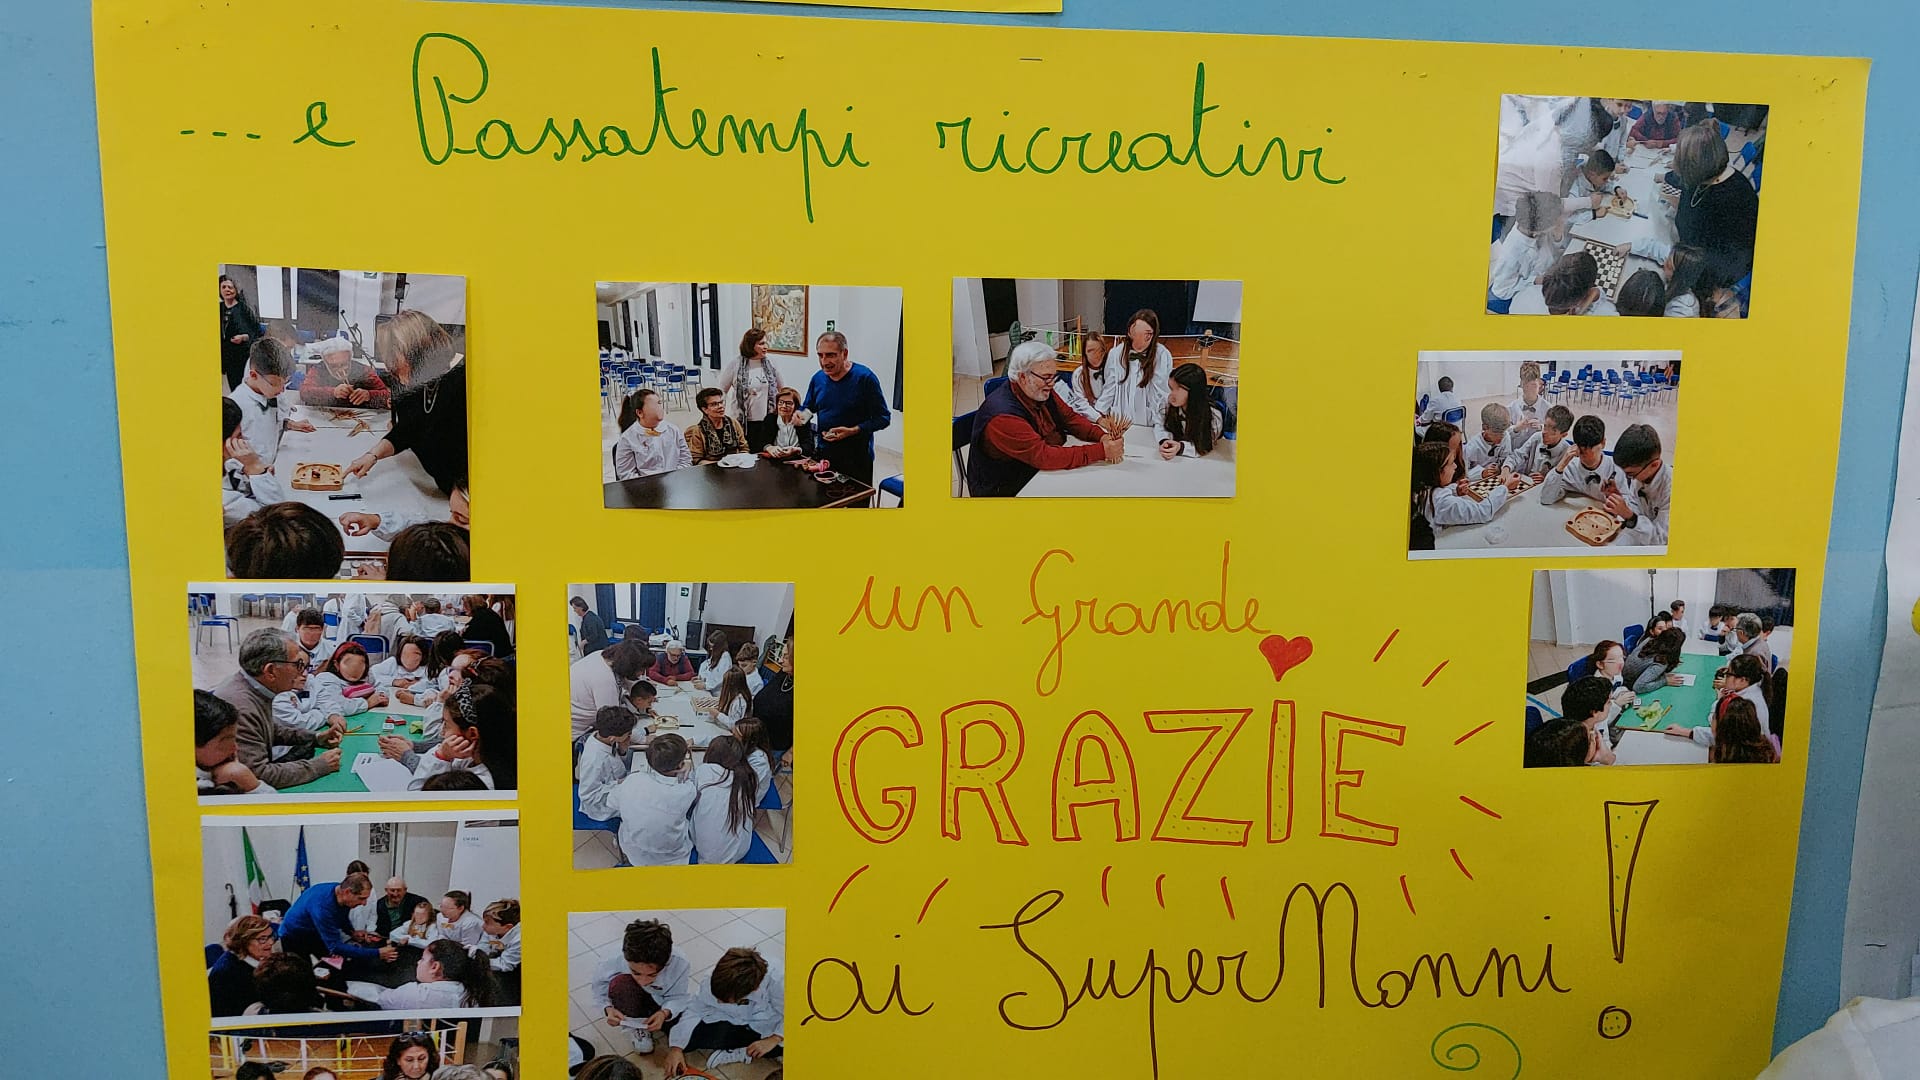 ... e Passatempi ricreativi
un Grande
GRAZIE
ai SuperNonni!